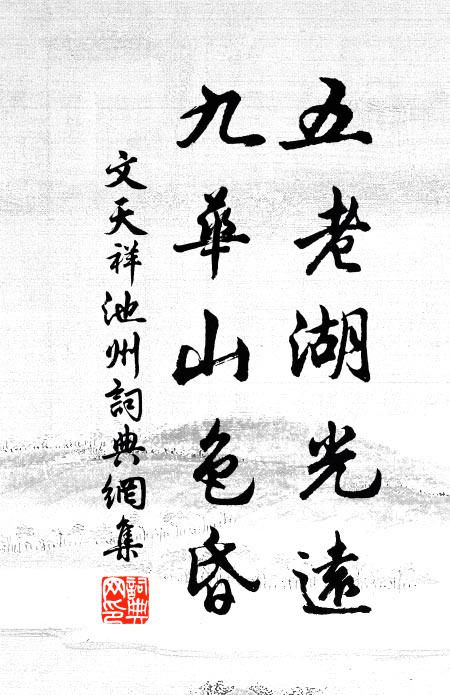 五老湖光遠
九華山色昏
文天祥池州詞典網集
詞典
网印